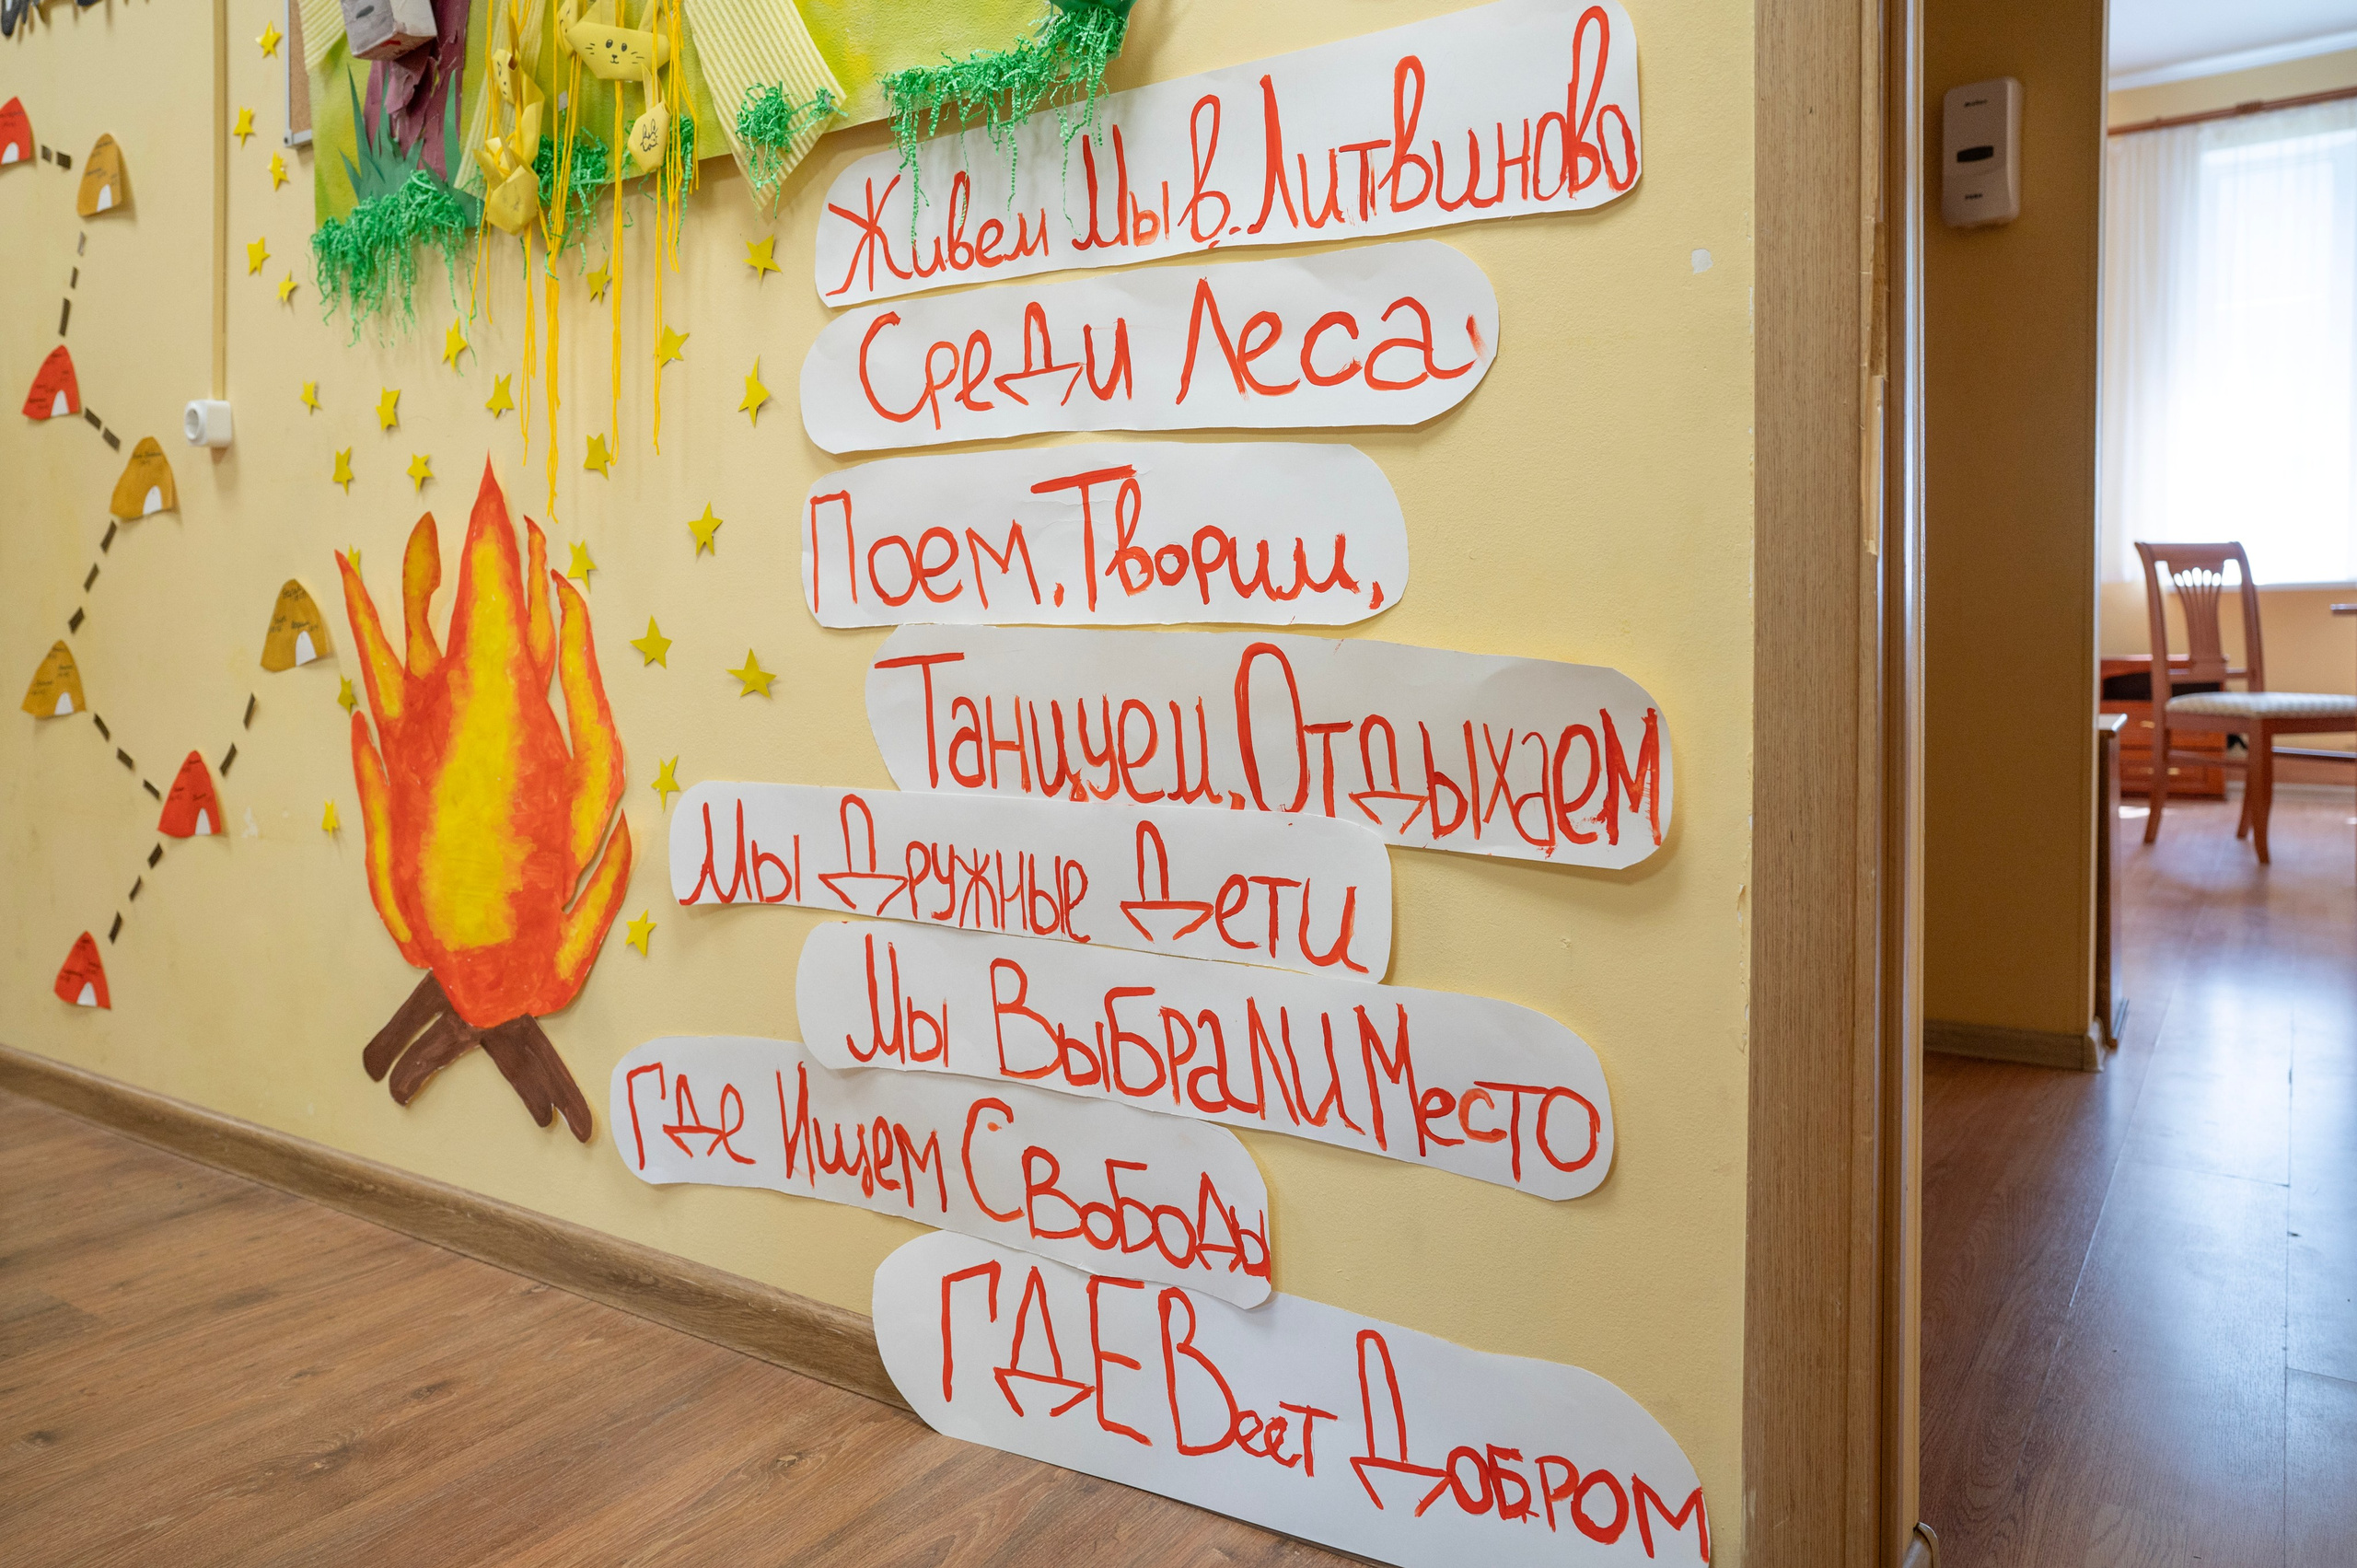 Живем Мы в Литвиново
Среди Леса,
Поем, Творим,
Танцуем, Отдыхаем
Мы Дружные Дети
Мы Выбрали Место
Где Ищем Свободы
ГДЕ Веет Добром